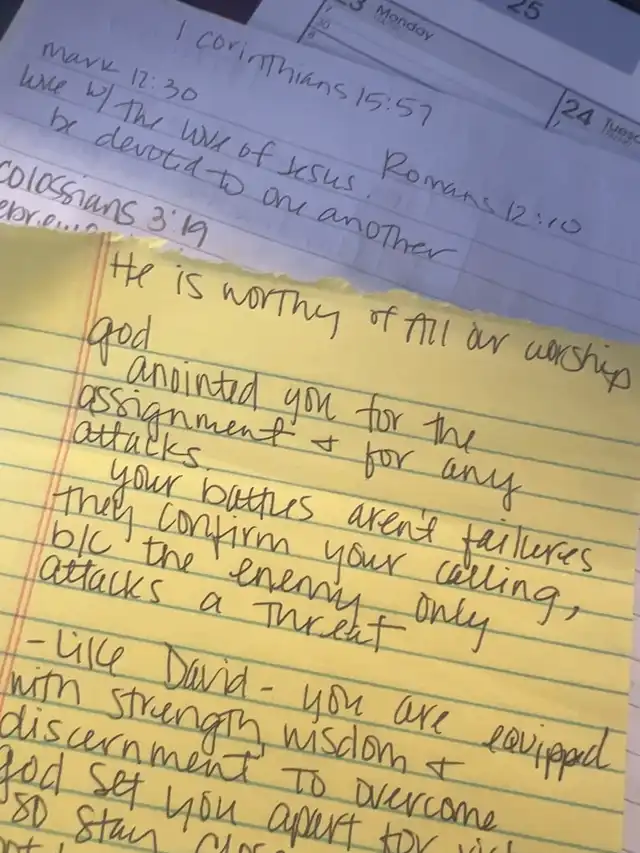 25
Monday
24
1 Corinthians 15:57
Mark 12:30
Romans 12:10
love w/ the love of Jesus.
be devoted to one another
colossians 3:19
He is worthy of All our worship
god
anointed you for the
assignment + for any
attacks.
your battles aren't failures
they confirm your calling,
b/c the enemy only
attacks a Threat
- Like David - you are equipped
with strength, wisdom +
discernment to overcome
god set you apart for
so stay